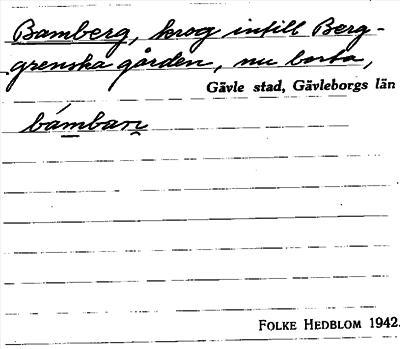 Bamberg, krog intill Berg-
grenska gården, nu borta,
Gävle stad, Gävleborgs län
bámbarı̣
FOLKE HEDBLOM 1942.